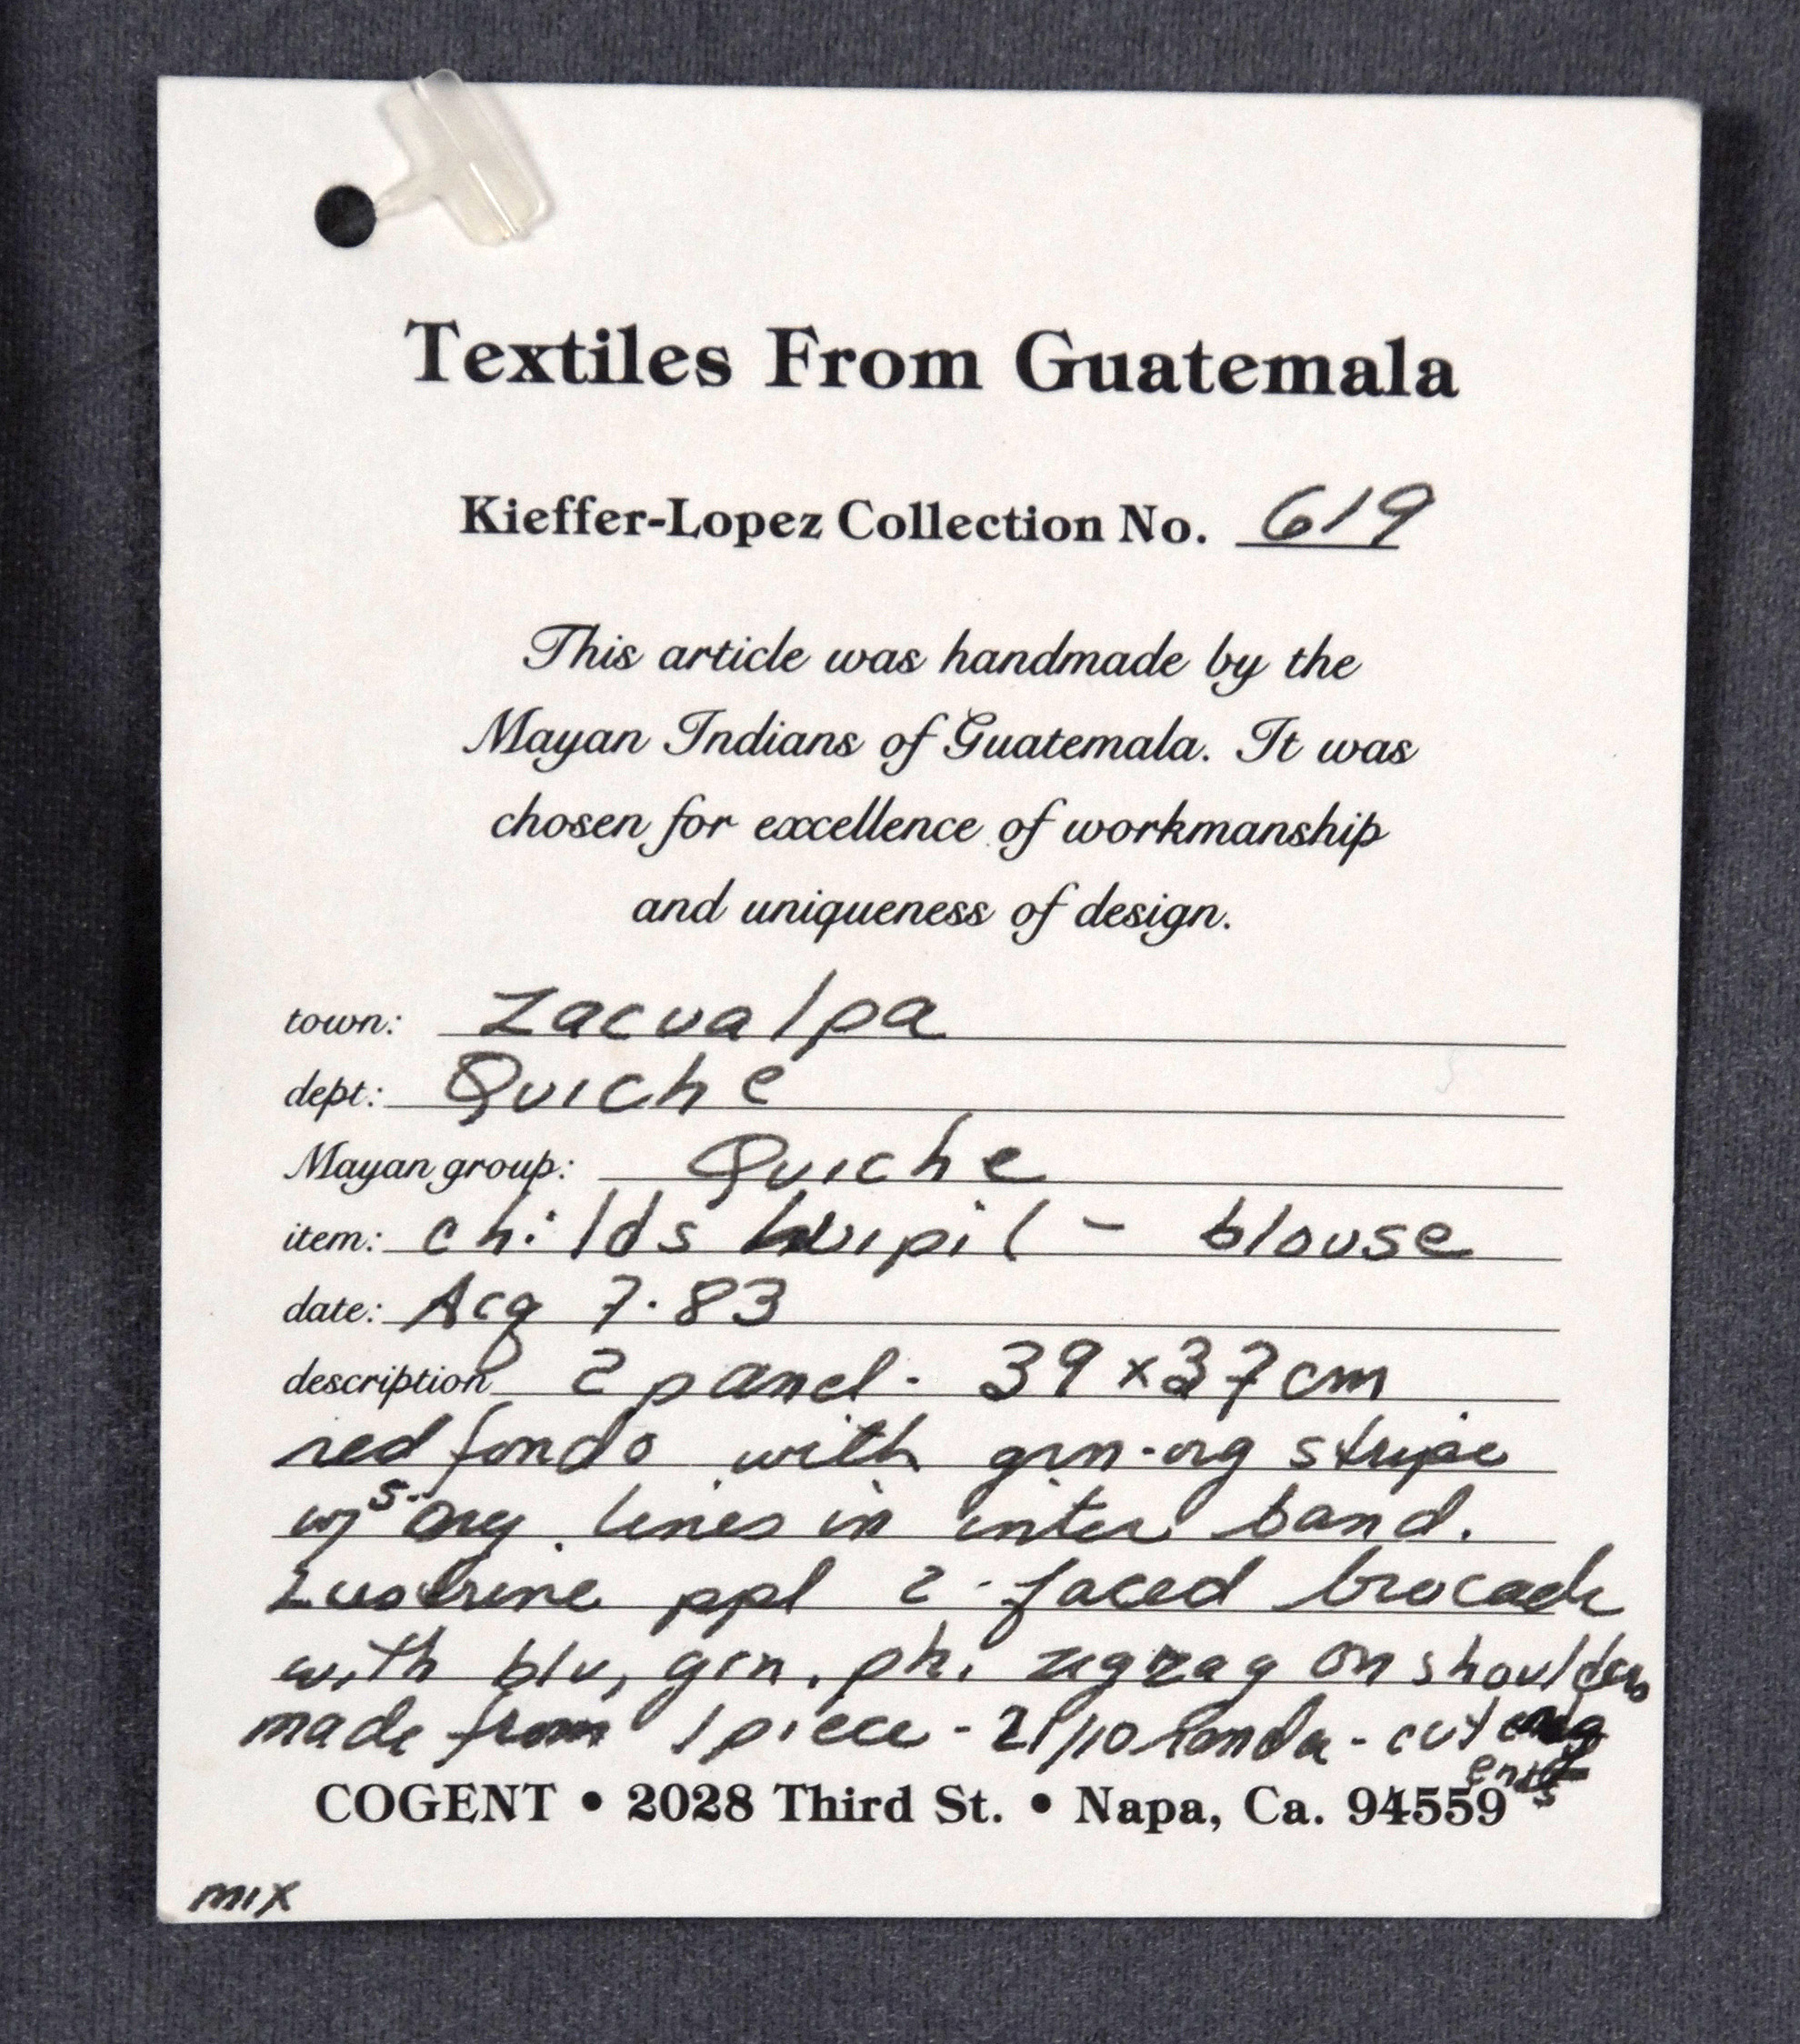 Textiles From Guatemala
Kieffer-Lopez Collection No. 619
This article was handmade by the
Mayan Indians of Guatemala. It was
chosen for excellence of workmanship
and uniqueness of design.
town: Zacualpa
dept: Quiche
Mayan group: Quiche
item: childs huipil - blouse
date: Acq 7.83
description 2 panel. 39 x 37cm
red fondo with grn-org stripe
w/ s. org. lines in inter band.
Lustrine ppl 2-faced brocade
with blu, grn, pk. zigzag on shoulders
made from 1 piece - 21/10 randa - cut
ends
COGENT • 2028 Third St. • Napa, Ca. 94559
mix